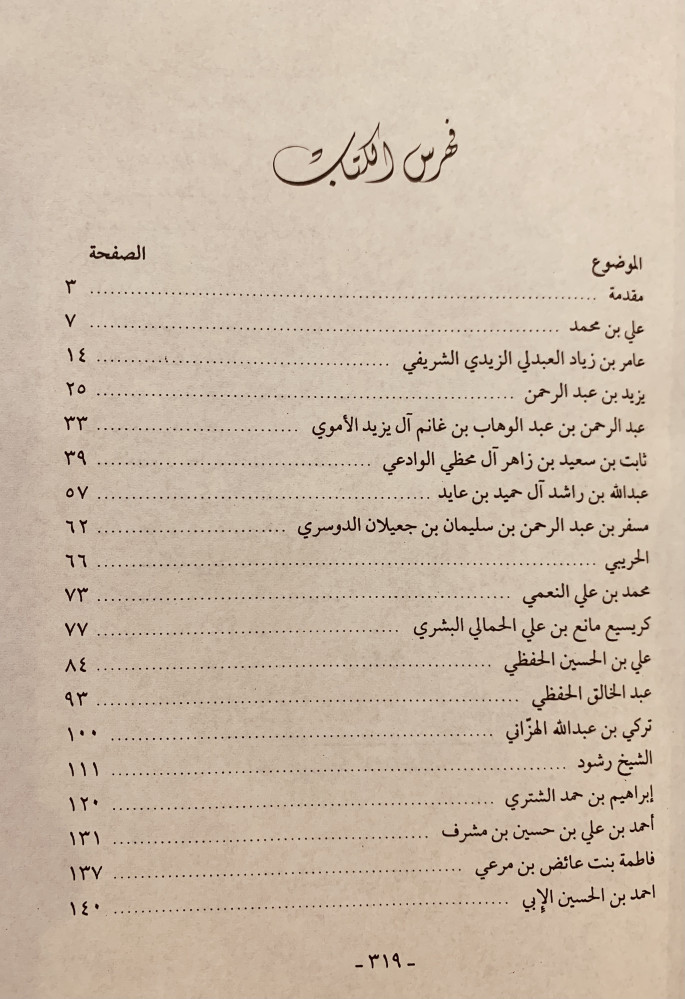 فهرس الكتاب
الموضوع الصفحة
مقدمة ................ ٣
علي بن محمد ................ ٧
عامر بن زياد العبدلي الزيدي الشريفي ................ ١٤
يزيد بن عبد الرحمن ................ ٢٥
عبد الرحمن بن عبد الوهاب بن غانم آل يزيد الأموي ................ ٣٣
ثابت بن سعيد بن زاهر آل محظي الوادعي ................ ٣٩
عبدالله بن راشد آل حميد بن عايد ................ ٥٧
مسفر بن عبد الرحمن بن سليمان بن جعيلان الدوسري ................ ٦٢
الحريبي ................ ٦٦
محمد بن علي النعمي ................ ٧٣
كريسيع مانع بن علي الحمالي البشري ................ ٧٧
علي بن الحسين الحفظي ................ ٨٤
عبد الخالق الحفظي ................ ٩٣
تركي بن عبدالله الهزّاني ................ ١٠٠
الشيخ رشود ................ ١١١
إبراهيم بن حمد الشتري ................ ١٢٠
أحمد بن علي بن حسين بن مشرف ................ ١٣١
فاطمة بنت عائض بن مرعي ................ ١٣٧
احمد بن الحسين الإبي ................ ١٤٠
- ٣١٩ -